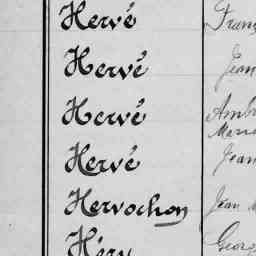 Hervé
Hervé Jean
Hervé Ambr
Hervé Jean
Hervochon Jean M
Héry Georg